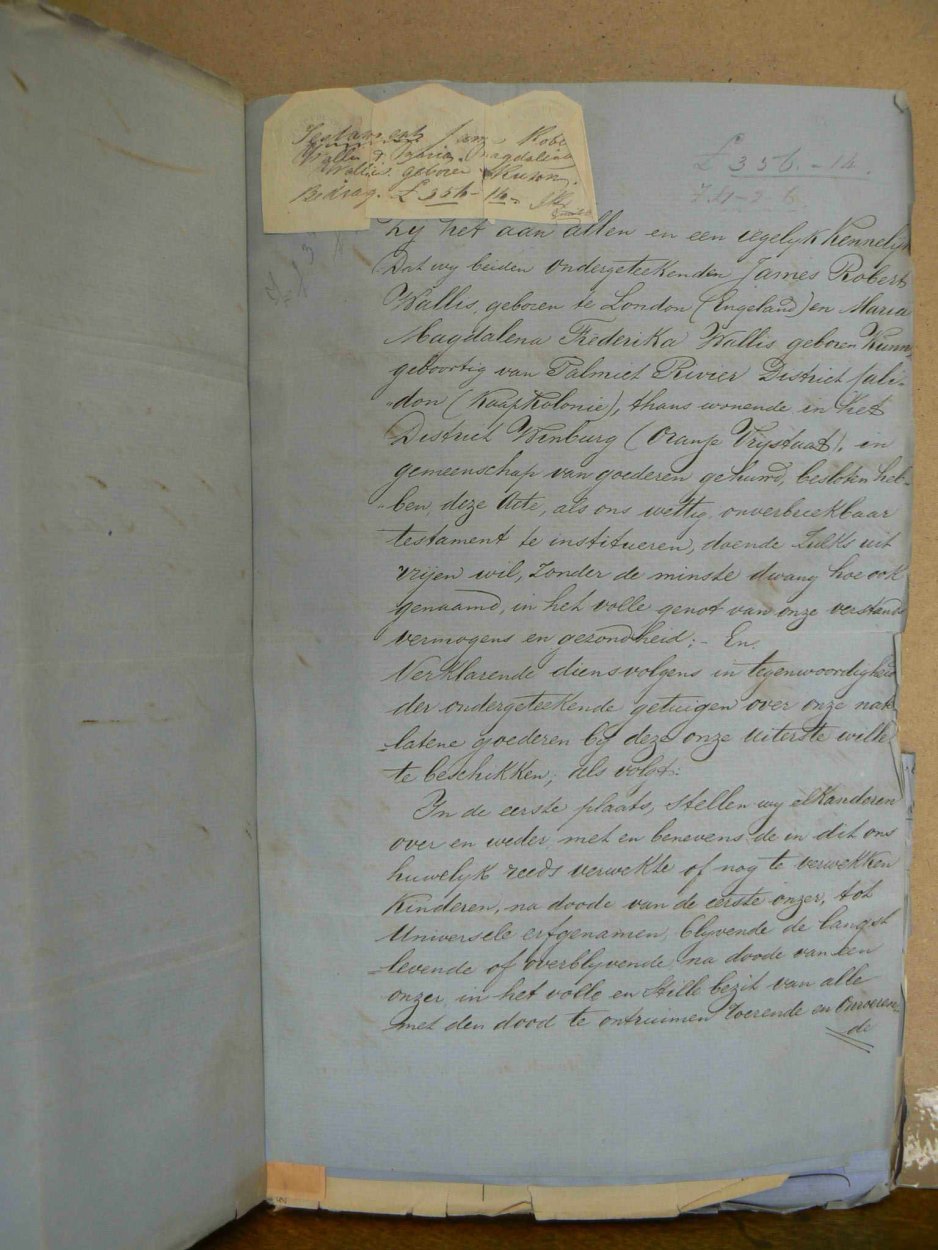 Testament van Robe
Wallis & Maria Magdalena
Wallis. geboren
Bedrag. £ 356 - 14 -
£ 356 - 14.
Zy het aan allen en een iegelyk kennelyk
Dat wy beiden ondergeteekenden James Robert
Wallis, geboren te London (Engeland) en Maria
Magdalena Frederika Wallis geboren
geboortig van Palmiet Rivier District Cali-
-don (Kaapkolonie), thans wonende in het
District Winburg (Oranje Vrystaat), in
gemeenschap van goederen gehuwd, besloten heb-
-ben, deze Acte, als ons wettig onverbreekbaar
testament te institueren, doende zulks uit
vrijen wil, zonder de minste dwang hoe ook
genaamd, in het volle genot van onze verstands
vermogens en gezondheid; - En.
Verklarende diensvolgens in tegenwoordigheid
der ondergeteekende getuigen over onze nat-
-latene goederen by deze onze uiterste wille
te beschikken, als volgt:
In de eerste plaats, stellen wy elkanderen
over en weder, met en benevens de in dit ons
huwelyk reeds verwekte of nog te verwekken
kinderen, na doode van de eerste onzer, tot
Universele erfgenamen, blyvende de langst
-levende of overblyvende na doode van een
onzer in het volle en stille bezit van alle
met den dood te ontruimen roerende en Onroeren-
de